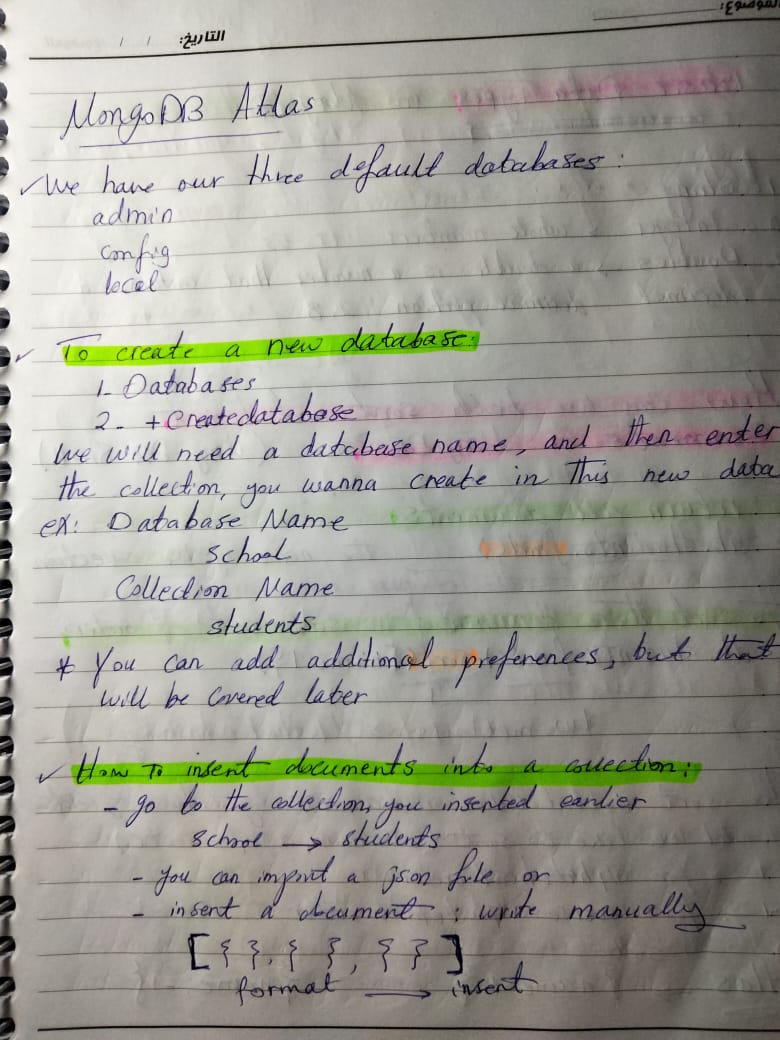 الموضوع:
التاريخ: / /
MongoDB Atlas
✓ We have our three default databases :
admin
config
local
✓ To create a new database:
1- Databases
2- + Createdatabase
We will need a database name, and then enter
the collection, you wanna create in this new data
ex: Database Name
school
Collection Name
students
* You can add additional preferences, but that
will be covered later
✓ How To insert documents into a collection:
- go to the collection, you inserted earlier
school → students
- you can import a json file or
- insert a document : write manually
[{ }, { }, { }]
format → insert